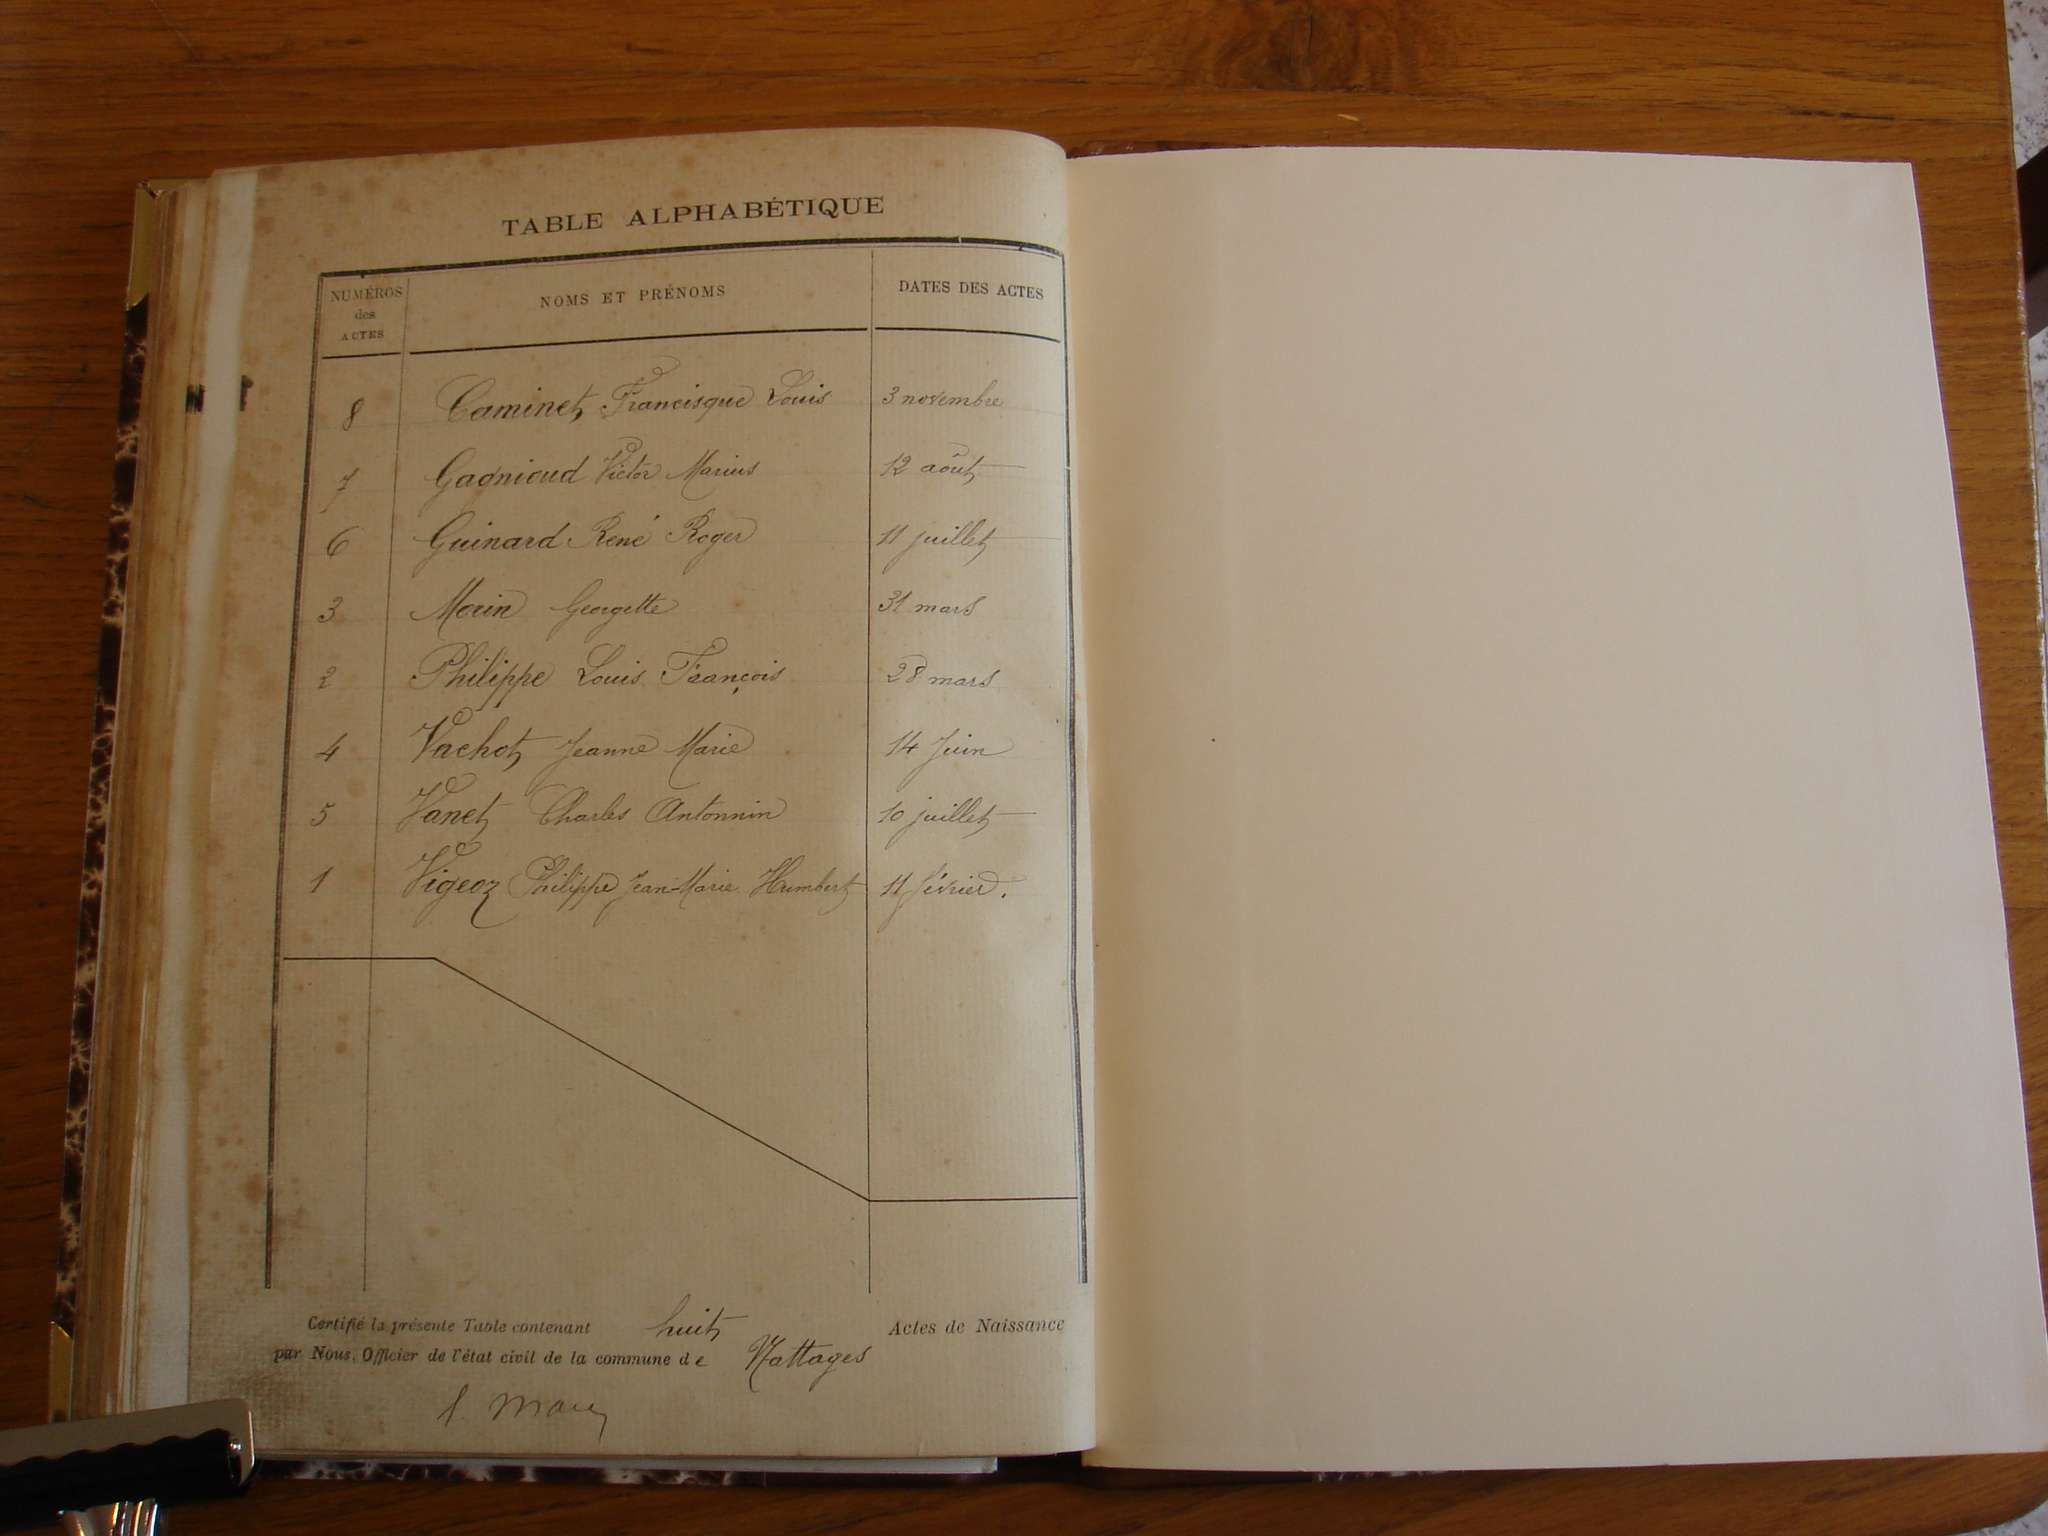 TABLE ALPHABÉTIQUE
NUMÉROS des ACTES NOMS ET PRÉNOMS DATES DES ACTES
8 Caminet Francisque Louis 3 novembre
7 Gagnioud Victor Marius 12 août
6 Guinard René Roger 11 juillet
3 Morin Georgette 31 mars
2 Philippe Louis François 28 mars
4 Vachot Jeanne Marie 14 Juin
5 Vanet Charles Antonnin 10 juillet
1 Vigeoz Philippe Jean-Marie Humbert 11 février.
Certifié la présente Table contenant huit Actes de Naissance
par Nous, Officier de l'état civil de la commune de Nattages